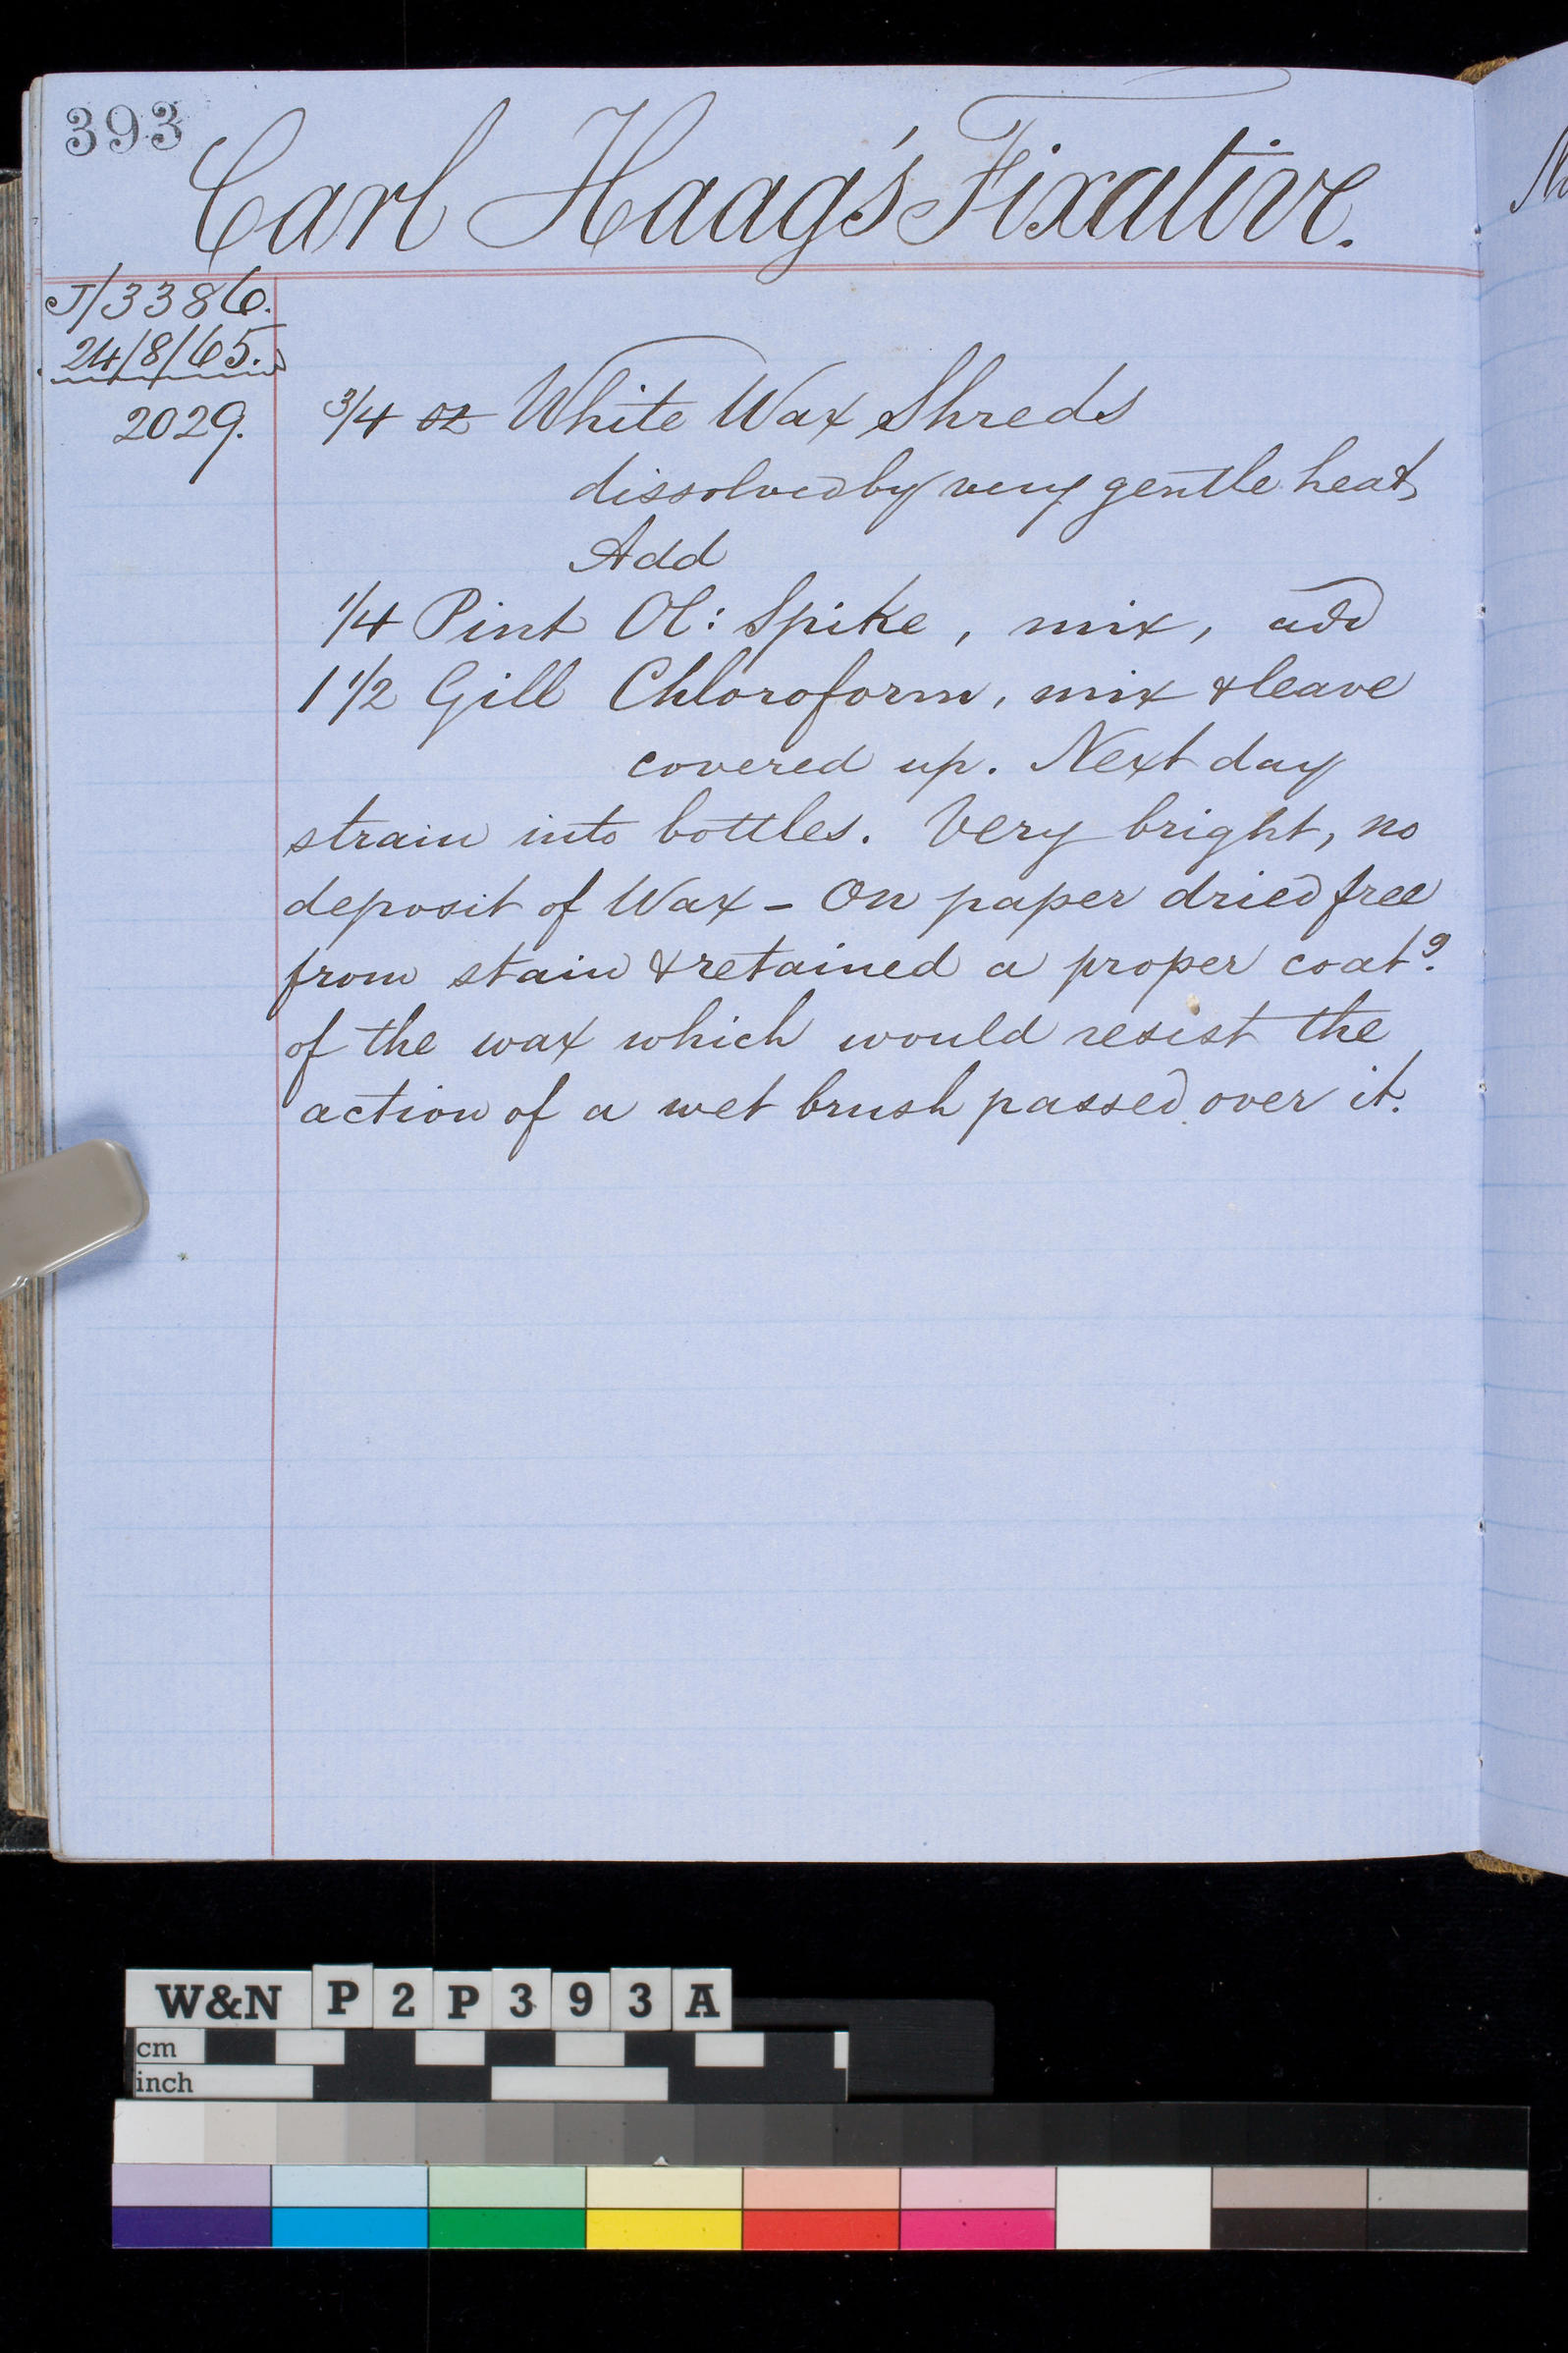 393
Carl Haag's Fixative.
J/3386.
24/8/65.
2029.
3/4 oz White Wax Shreds
dissolved by very gentle heat
Add
1/4 Pint Ol: Spike, mix, add
1 1/2 Gill Chloroform, mix & leave
covered up. Next day
strain into bottles. Very bright, no
deposit of Wax - On paper dried free
from stain & retained a proper coatg.
of the wax which would resist the
action of a wet brush passed over it.
W&N P2P393A
cm
inch